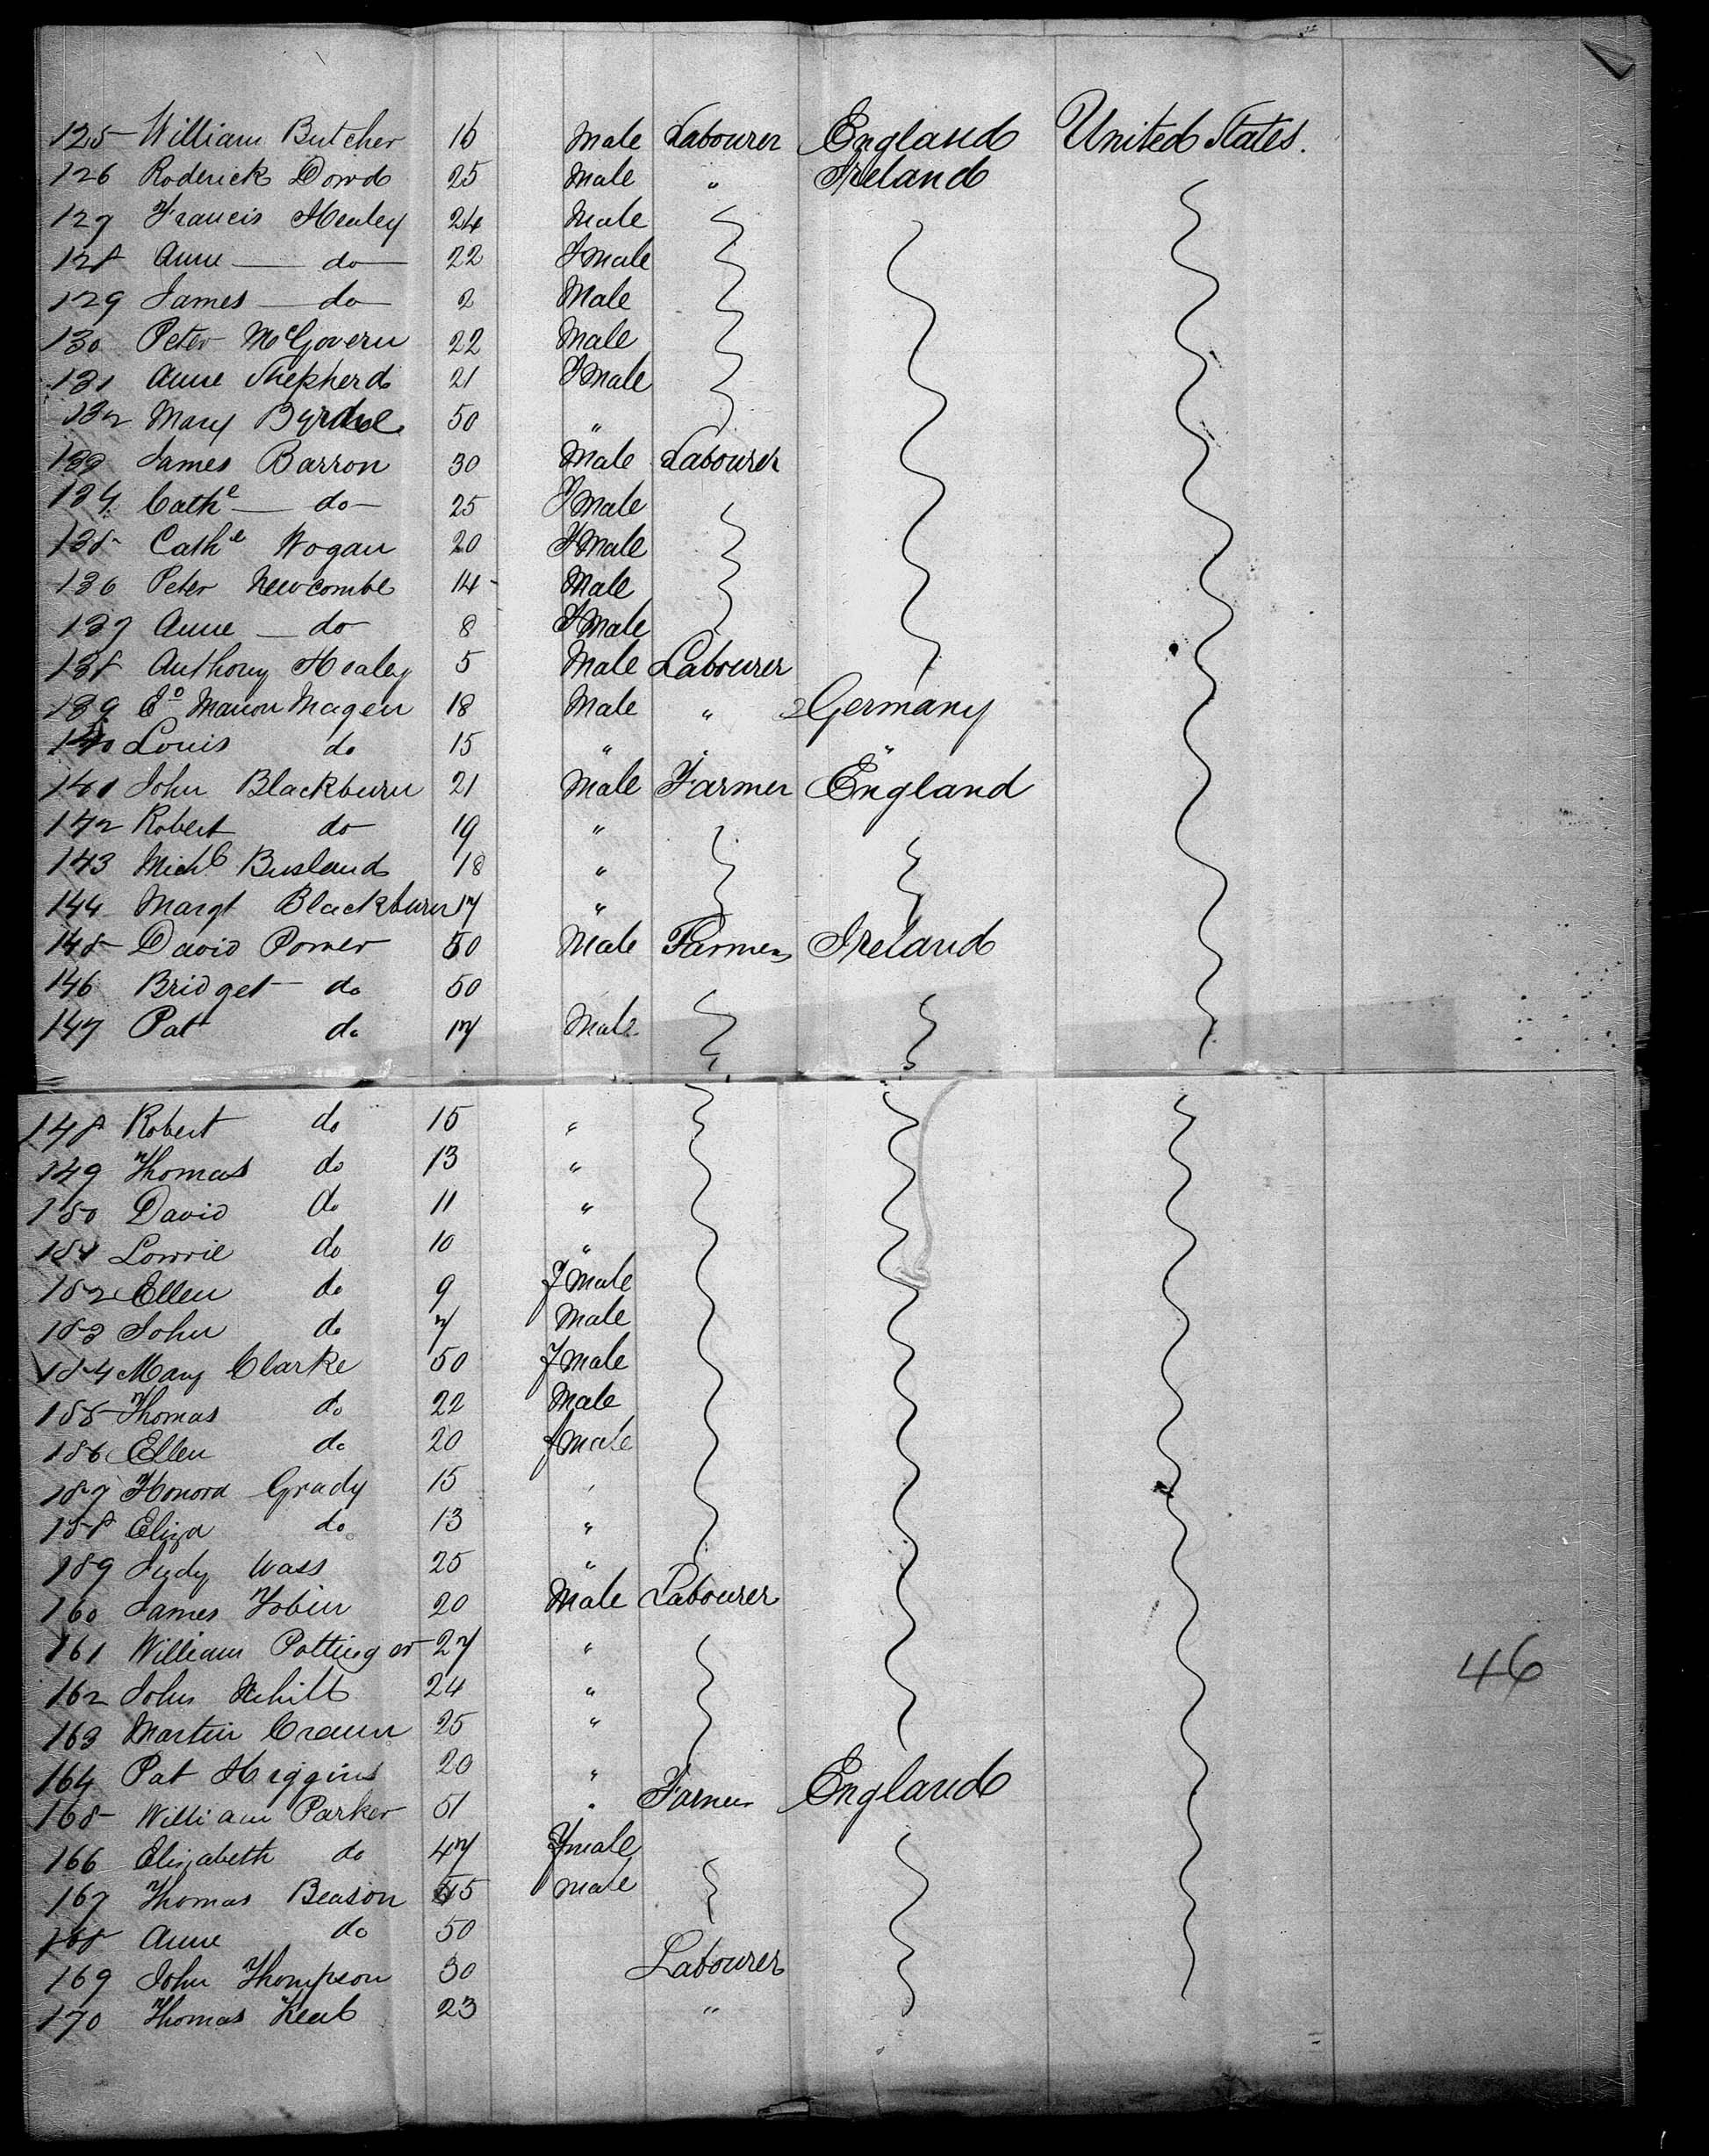 125 William Butcher 16 Male Labourer England United States.
126 Roderick Dowd 25 Male " Ireland
127 Francis Healey 24 Male
128 Anne — do — 22 Fmale
129 James — do — 2 Male
130 Peter McGovern 22 Male
131 Anne Shepherd 21 Fmale
132 Mary 50 "
133 James Barron 30 Male Labourer
134 Cathe — do — 25 Fmale
135 Cathe Wogan 20 Fmale
136 Peter Newcombe 14 Male
137 Anne — do 8 Fmale
138 Anthony Healey 5 Male Labourer
139 Magen 18 Male " Germany
140 Louis do 15 " " "
141 John Blackburn 21 Male Farmer England
142 Robert do 19 "
143 Michl Busland 18 "
144 Margt Blackburn 17 "
145 David Power 50 Male Farmer Ireland
146 Bridget — do 50
147 Pat do 17 Male
148 Robert do 15 "
149 Thomas do 13 "
150 David do 11 "
151 Lowrie do 10 "
152 Ellen do 9 Fmale
153 John do 7 Male
154 Mary Clarke 50 Fmale
155 Thomas do 22 Male
156 Ellen do 20 fmale
157 Honora Grady 15 "
158 Eliza do 13 "
159 Judy Wass 25 "
160 James Tobin 20 Male Labourer
161 William Pottinger 27 "
162 John 24 "
163 Martin 25 "
164 Pat Higgins 20 "
165 William Parker 51 " Farmer England
166 Elizabeth do 47 Fmale
167 Thomas Beason 45 male
168 Anne do 50
169 John Thompson 30 Labourer
170 Thomas 23 "
46